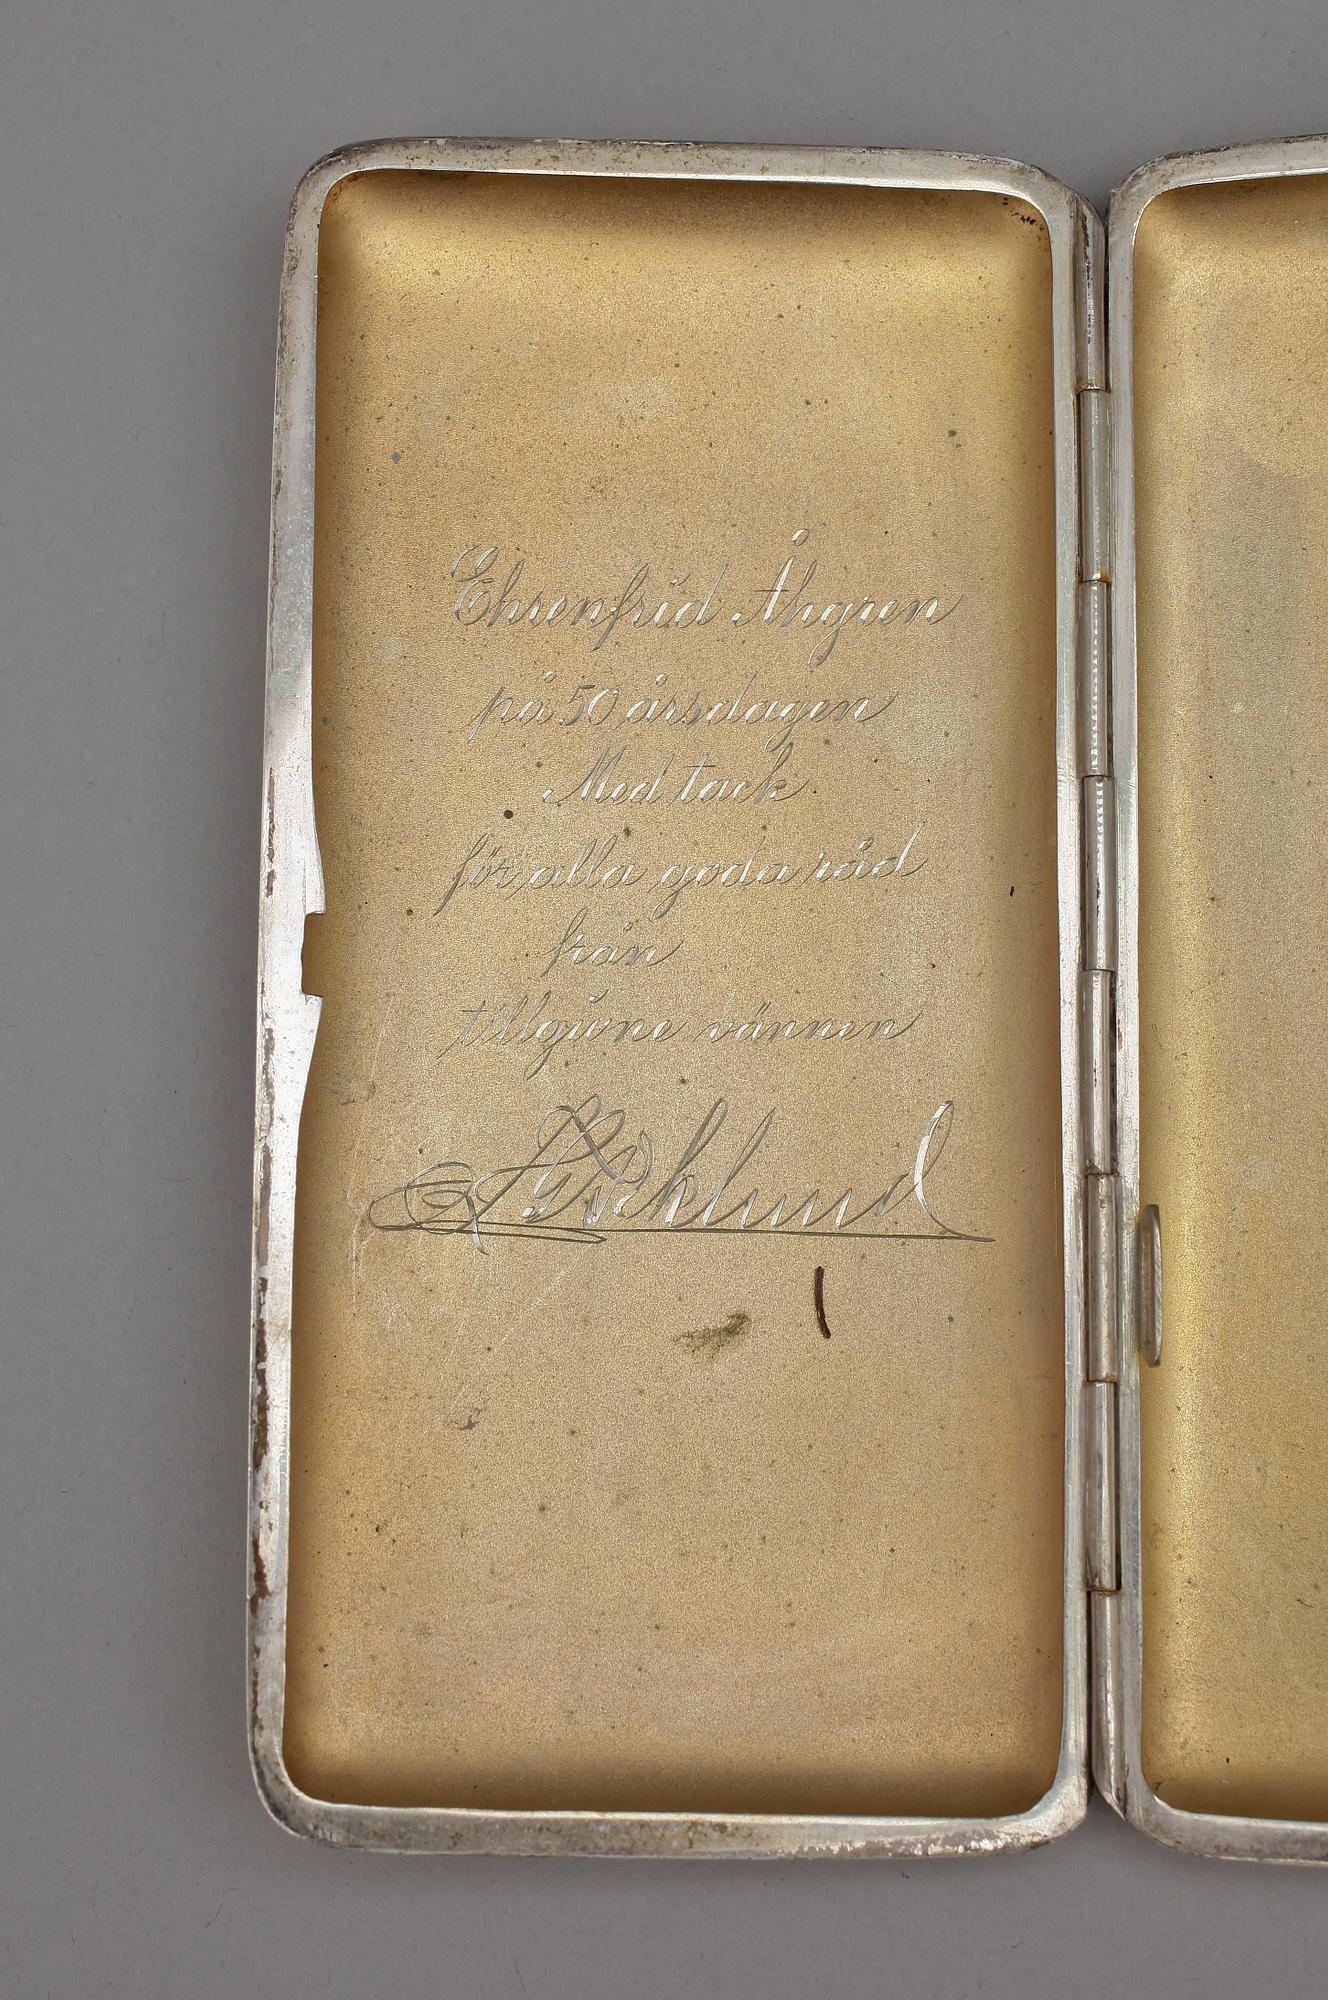 Ehrenfrid Åhgren
på 50 årsdagen
Med tack
för alla goda råd
från
tillgivne vännen